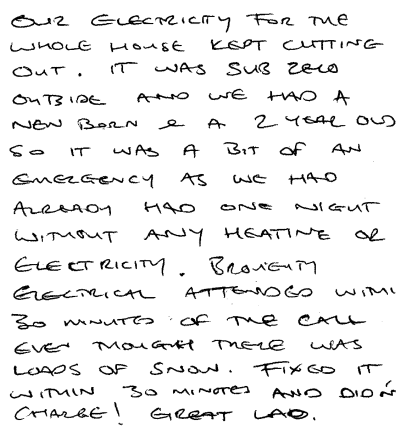 OUR ELECTRICITY FOR THE
WHOLE HOUSE KEPT CUTTING
OUT. IT WAS SUB ZERO
OUTSIDE AND WE HAD A
NEW BORN & A 2 YEAR OLD
SO IT WAS A BIT OF AN
EMERGENCY AS WE HAD
ALREADY HAD ONE NIGHT
WITHOUT ANY HEATING OR
ELECTRICITY. BROUGHTY
ELECTRICAL ATTENDED WITHI
30 MINUTES OF THE CALL
EVEN THOUGH THERE WAS
LOADS OF SNOW. FIXED IT
WITHIN 30 MINUTES AND DIDN'
CHARGE! GREAT LAD.